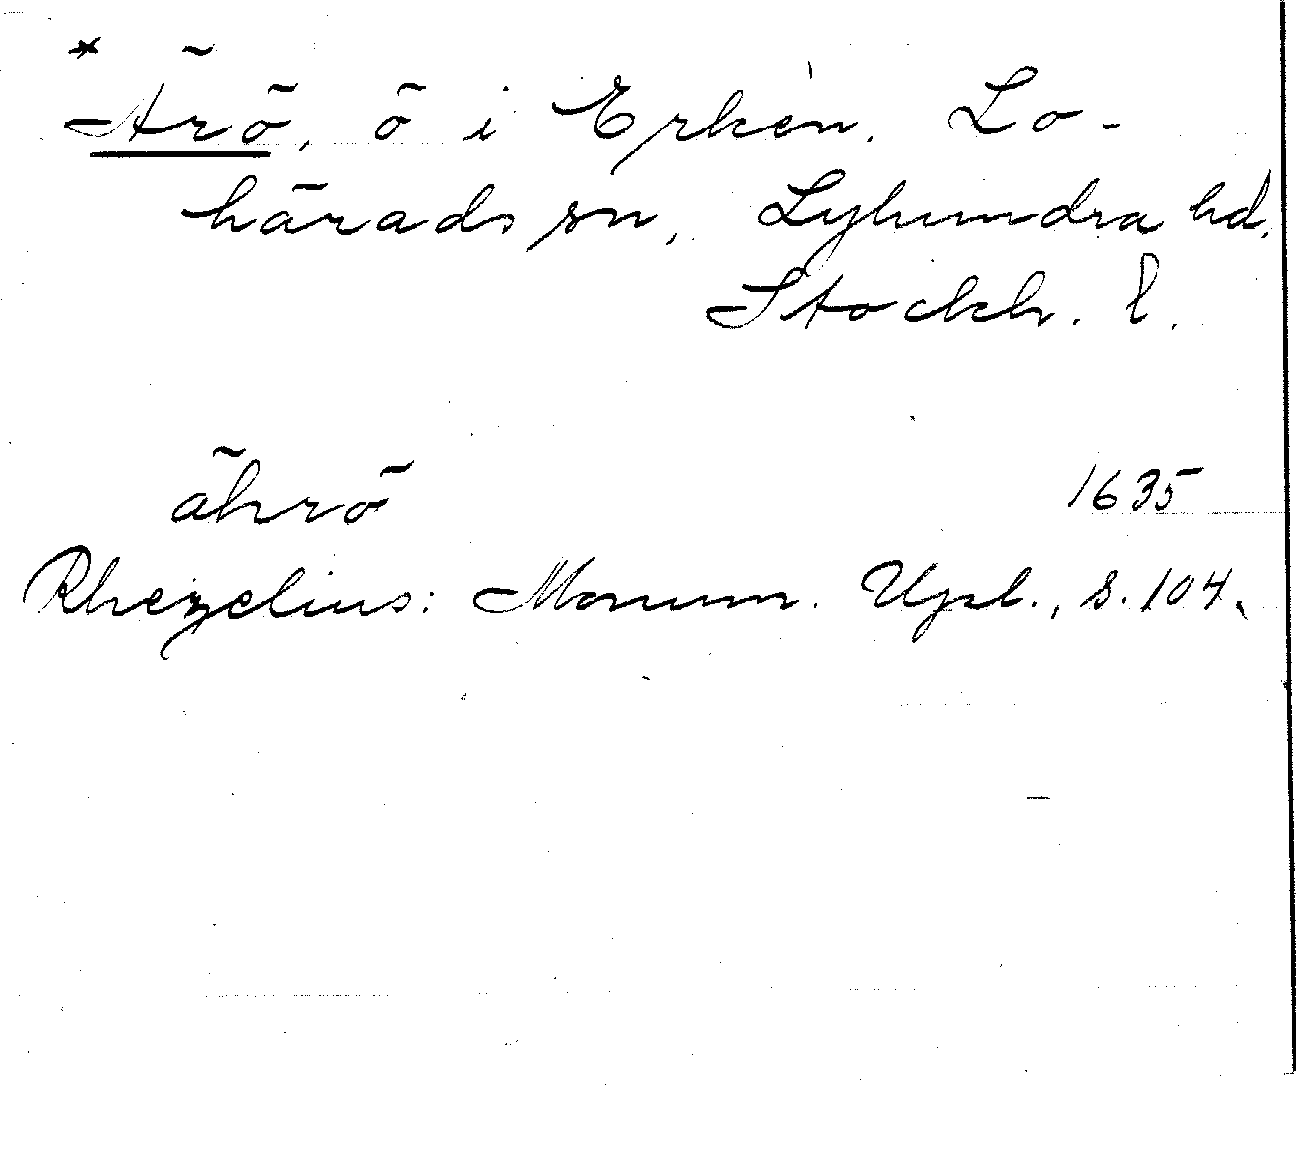 *Ärö, ö i Erken. Lo-
härads sn, Lyhundra hd.
Stockh. l.
ährö 1635
Rhezelius: Monum. Upl., s. 104.